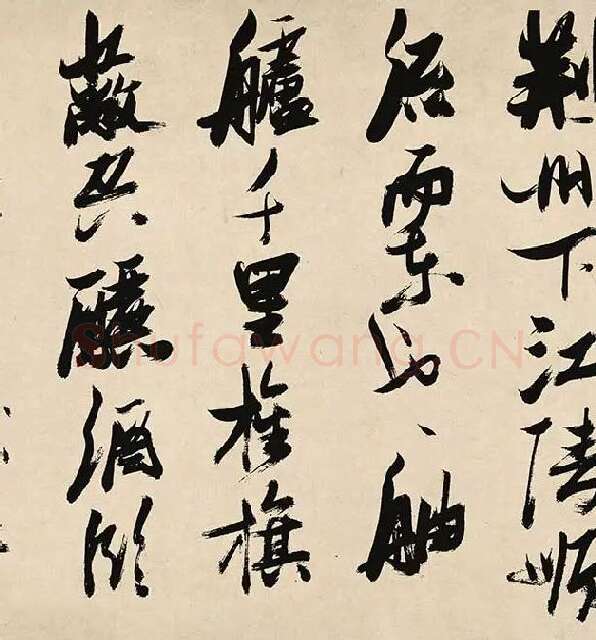 荊州下江陵順
流而東也舳
艫千里旌旗
蔽空釃酒臨
Shufawang.CN